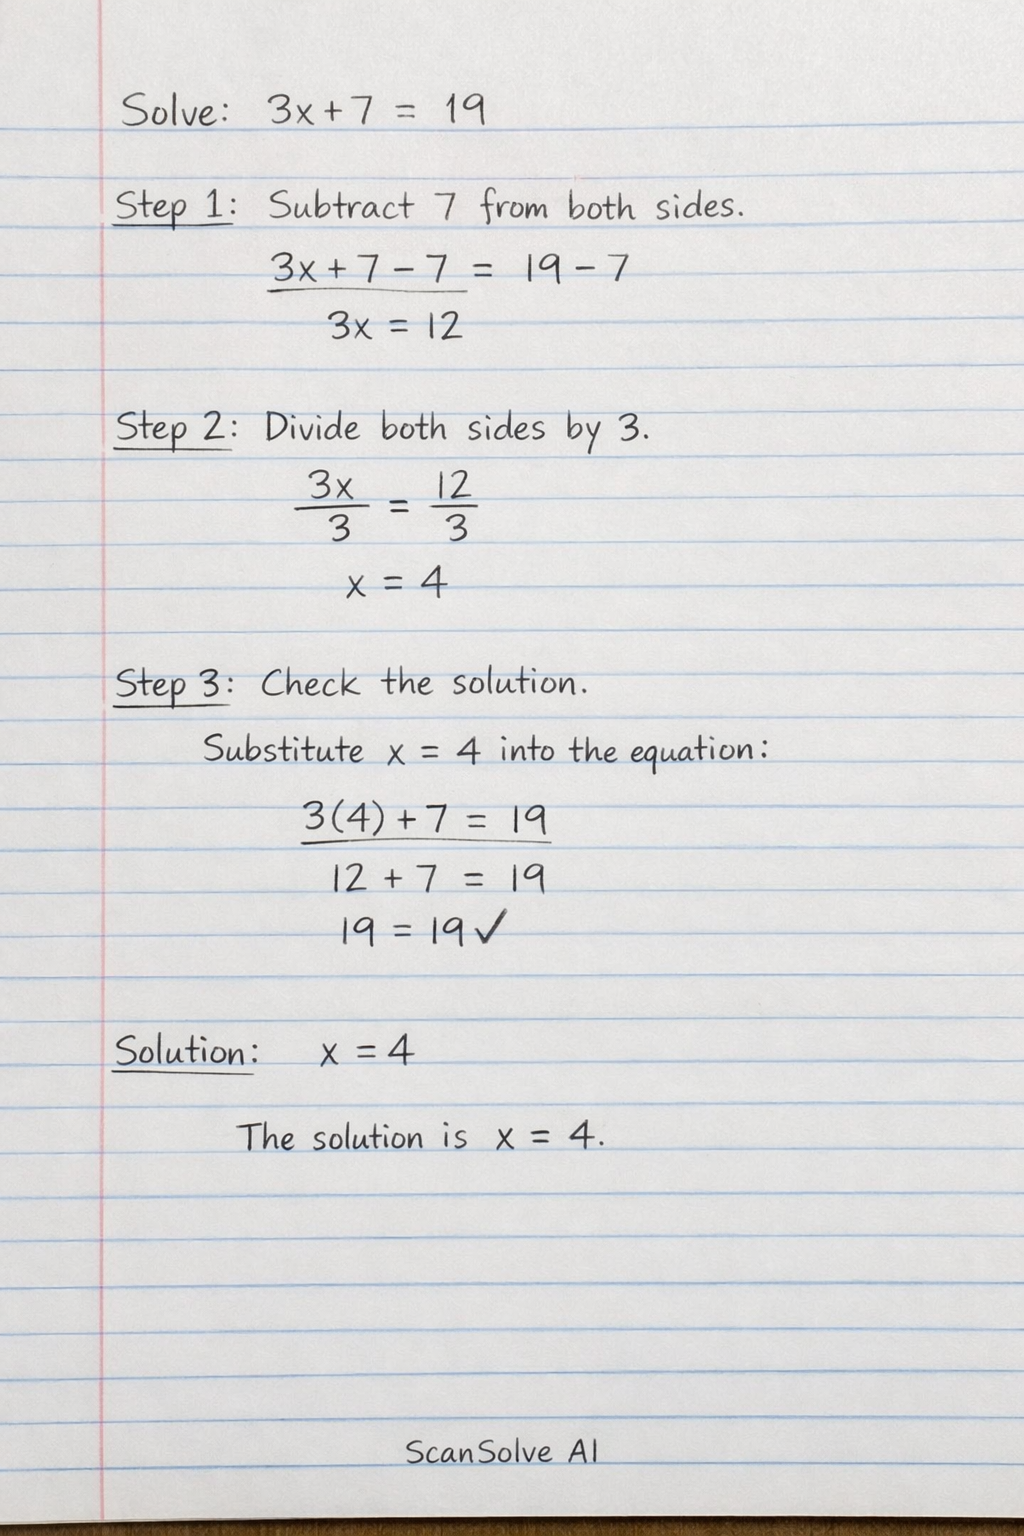 Solve: 3x + 7 = 19
Step 1: Subtract 7 from both sides.
3x + 7 - 7 = 19 - 7
3x = 12
Step 2: Divide both sides by 3.
3x/3 = 12/3
x = 4
Step 3: Check the solution.
Substitute x = 4 into the equation:
3(4) + 7 = 19
12 + 7 = 19
19 = 19 ✓
Solution: x = 4
The solution is x = 4.
ScanSolve AI